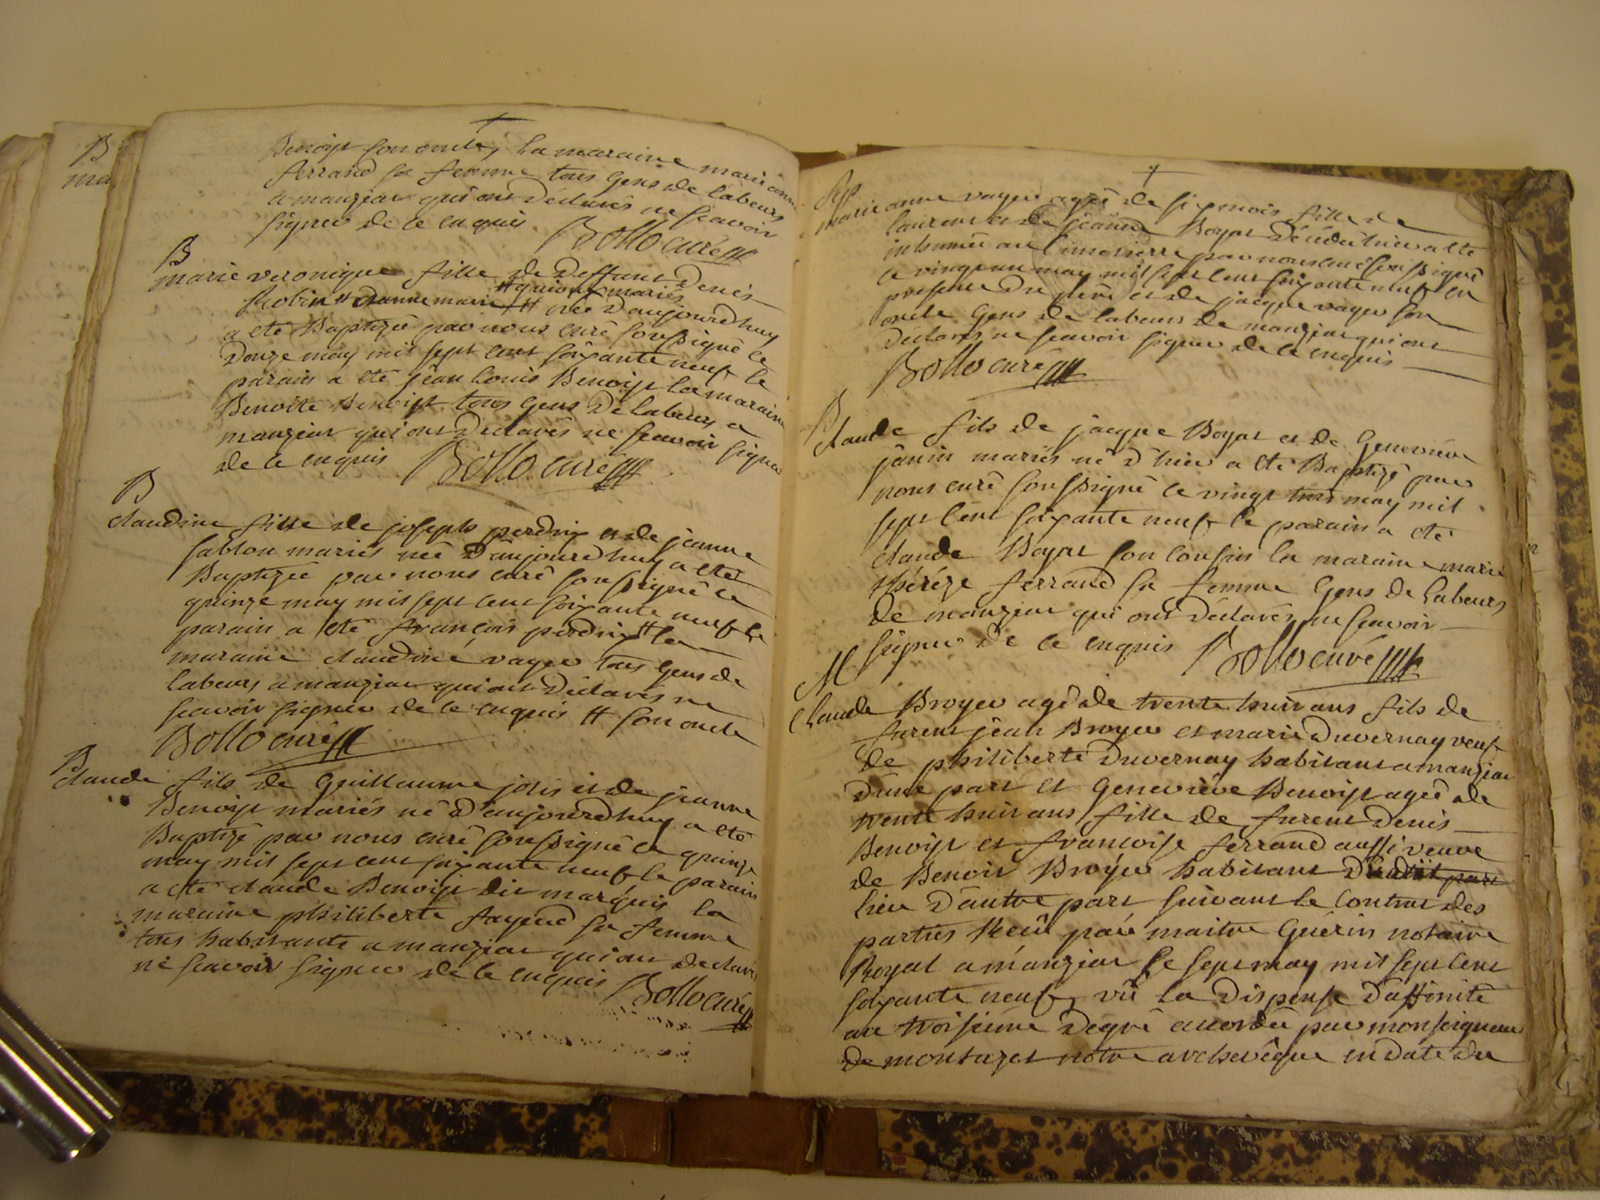 B
ma
Benoist son oncle, la maraine marie anne
ferrand sa femme tous gens de labeurs
a manziat qui ont déclarés ne scavoir
signer de ce enquis Bollo curé
B
marie veronique fille de deffunt Denis
Robin # anne marie # née d'aujourd'huy
# guion mariés
a eté Baptizée par nous curé soussigné le
douze may mil sept cent soixante neuf le
parain a eté jean Louis Benoist la maraine
Benoite Benoist tous gens de labeurs a
manziat qui ont déclarés ne scavoir signer
de ce enquis Bollo curé
B
claudine fille de joseph perdrix et de jeanne
sablon mariés née d'aujourd'huy a eté
Baptizée par nous curé soussigné le
quinze may mil sept cent soixante neuf le
parain a eté françois perdrix # la
maraine claudine vayer tous gens de
labeurs a manziat qui ont déclarés ne
scavoir signer de ce enquis # son oncle
Bollo curé
B
claude fils de Guillaume joly et de jeanne
Benoist mariés né d'aujourd'huy a eté
Baptizé par nous curé soussigné le quinze
may mil sept cent soixante neuf le parain
a eté claude Benoist dit marquis la
maraine philiberte sa femme
tous habitants a manziat qui ont déclarés
ne scavoir signer de ce enquis Bollo curé
marie anne vayer agée de six mois fille de
laurent et de jeanne Boyat décédée hier a eté
inhumée au cimetierre par nous curé soussigné
le vingt un may mil sept cent soixante neuf en
presence du père et de jacque vayer son
oncle gens de labeurs de manziat qui ont
déclarés ne scavoir signer de ce enquis
Bollo curé
B
claude fils de jacque Boyat et de Genevieve
janin mariés né d'hier a eté Baptizé par
nous curé soussigné le vingt trois may mil
sept cent soixante neuf le parain a eté
claude Boyat son cousin la maraine marie
thérèze ferrand sa femme gens de labeurs
de manziat qui ont déclarés ne scavoir
signer de ce enquis Bollo curé
M
Claude Broyer agé de trente huit ans fils de
furent jean Broyer et marie Duvernay veuf
de philiberte Duvernay habitant a manziat
d'une part et Geneviéve Benoist agée de
trente huit ans fille de furent Denis
Benoist et francoise ferrand aussi veuve
de Benoit Broyer habitant dudit part
lieu d'autre part suivant le contrat des
parties Reçu par maitre Guérin notaire
Royal a manziat le sept may mil sept cent
soixante neuf, vû la dispense d'affinité
au troisième degré accordée par monseigneur
de montazet notre archevêque en date du